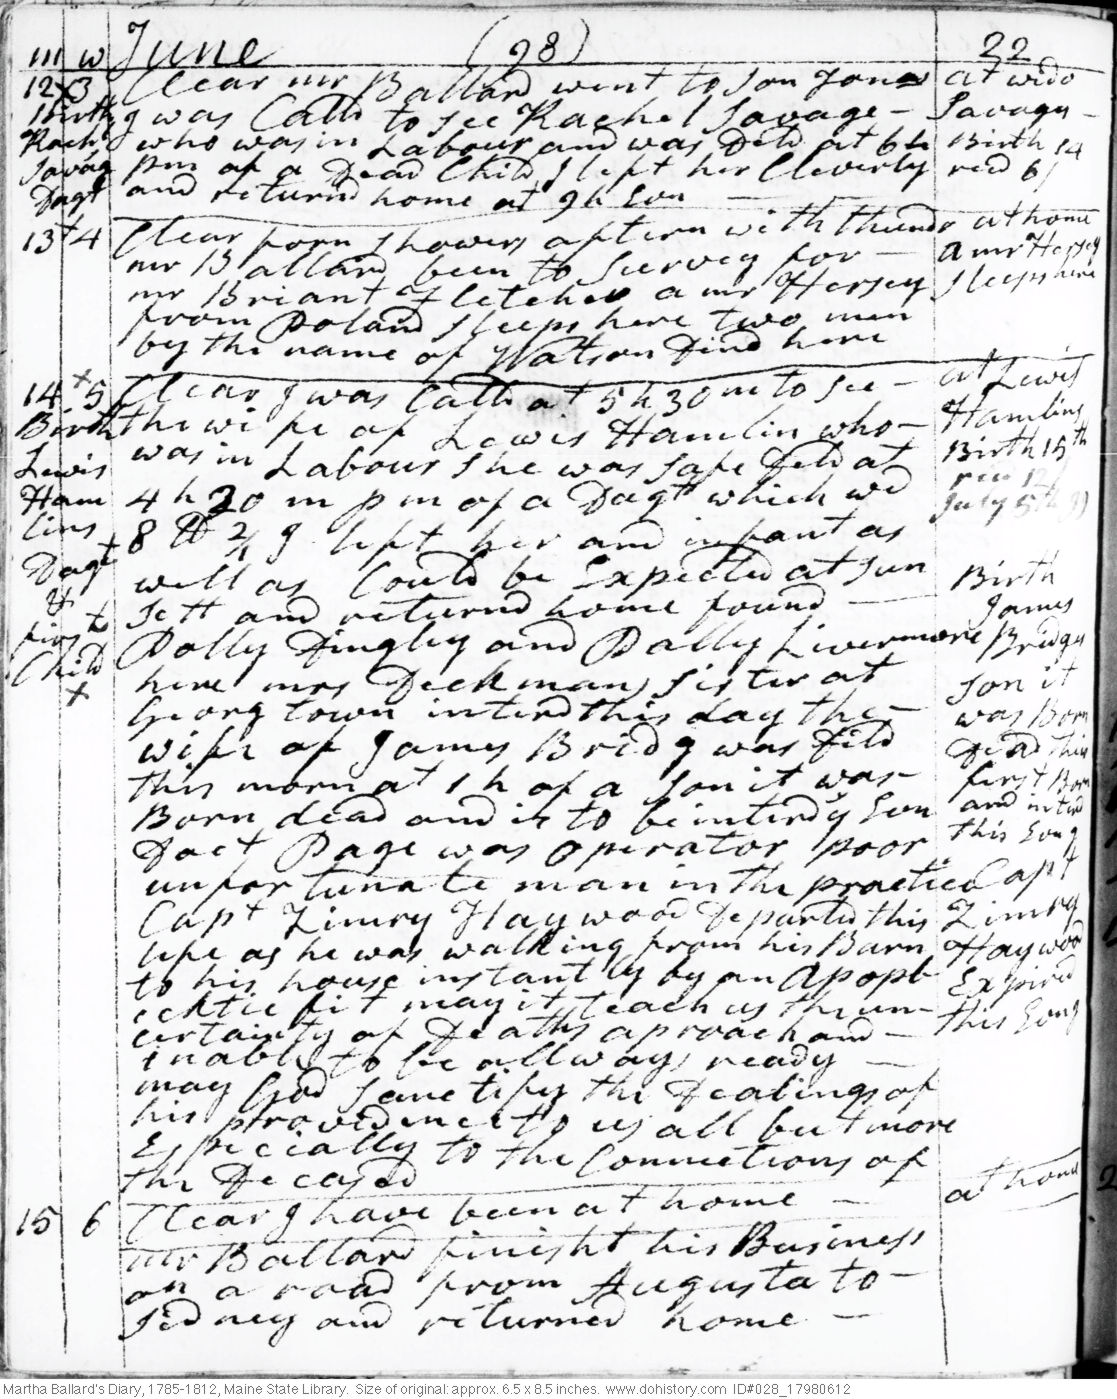 m w June (98) 22
12 x 3 Clear mr Ballard went to Son Jonas at wido
Birth I was Calld to see Rachel Savage - Savages -
Rachl who was in Labour and was Deld at 6 h Birth 14
Savag pm of a Dead Child I left her Cleverly reid 6/
Dagt and returnd home at 9 h Evn
13 4 Clear forn showers aftern with thundr at home
mr Ballard been to Survey for - a mr Hersey
mr Briant & Fletcher a mr Hersey sleeps here
from Poland sleeps here two men
by the name of Watson Dind here
14 x 5 Clear I was Calld at 5 h 30 m to see - at Lewis
Birth the wife of Lewis Hamlin who - Hamlins
Lewis was in Labour She was safe Deld at Birth 15th
Ham 4 h 30 m pm of a Dagt which wd reid 12/
lins 8 lb 2/4 I left her and infant as July 5th 99
Dagt well as Could be Expected at Sun Birth
& Sett and returnd home found - James
first Polly Dingley and Polly Livermore Bridgs
Child here mrs Deckman, sister at son it
x Georgtown interd this day the - was Born
wife of James Bridg was Deld Dead this
this morn at 1 h of a son it was - first Born
Born dead and is to be interdy Evn and interd
Doct Page was operator poor this Evng
unfortunate man in the practice Capt
Capt Zimry Haywood Departed this Zimry
life as he was walking from his Barn Haywood
to his house instantly by an Apopl Expired
ecktic fit may it teach us the un- this Evng
certainty of Deaths aproach and -
inable to be allways ready -
may God Sanctify the Dealings of
his providence to us all but more
Especially to the Connections of
the Decased
15 6 Clear I have been at home - at home
mr Ballard finisht his Business
on a road from Augusta to -
Sidney and returned home -
Martha Ballard's Diary, 1785-1812, Maine State Library. Size of original: approx. 6.5 x 8.5 inches. www.dohistory.com ID#028_17980612